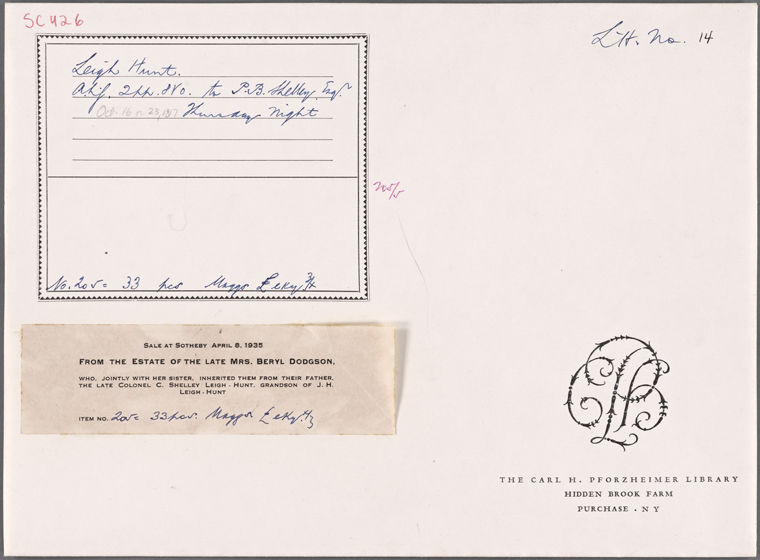 SC 426
L.H. No. 14
Leigh Hunt.
2pp. 8vo. to P.B. Shelley, Esqr
Oct. 16 or 23, 1817 Thursday Night
205/5
No. 205 = 33 pcs Maggs
SALE AT SOTHEBY APRIL 8, 1935
FROM THE ESTATE OF THE LATE MRS. BERYL DODGSON,
WHO, JOINTLY WITH HER SISTER, INHERITED THEM FROM THEIR FATHER,
THE LATE COLONEL C. SHELLEY LEIGH-HUNT, GRANDSON OF J. H.
LEIGH-HUNT
ITEM NO. 205 = 33 pcs. Maggs
THE CARL H. PFORZHEIMER LIBRARY
HIDDEN BROOK FARM
PURCHASE · NY